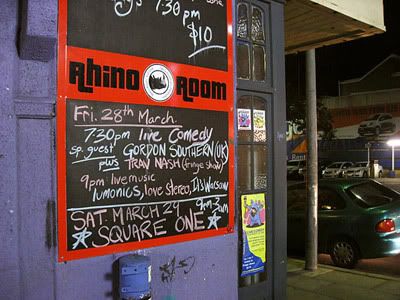 7:30 pm
$10
Rhino Room
Fri. 28th March.
7:30pm live Comedy
sp. guest GORDON SOUTHERN (UK)
plus TRAV NASH (fringe show)
9pm live music
lumonics, love stereo, DJ's Watson
SAT. MARCH 29 9pm-3am
SQUARE ONE